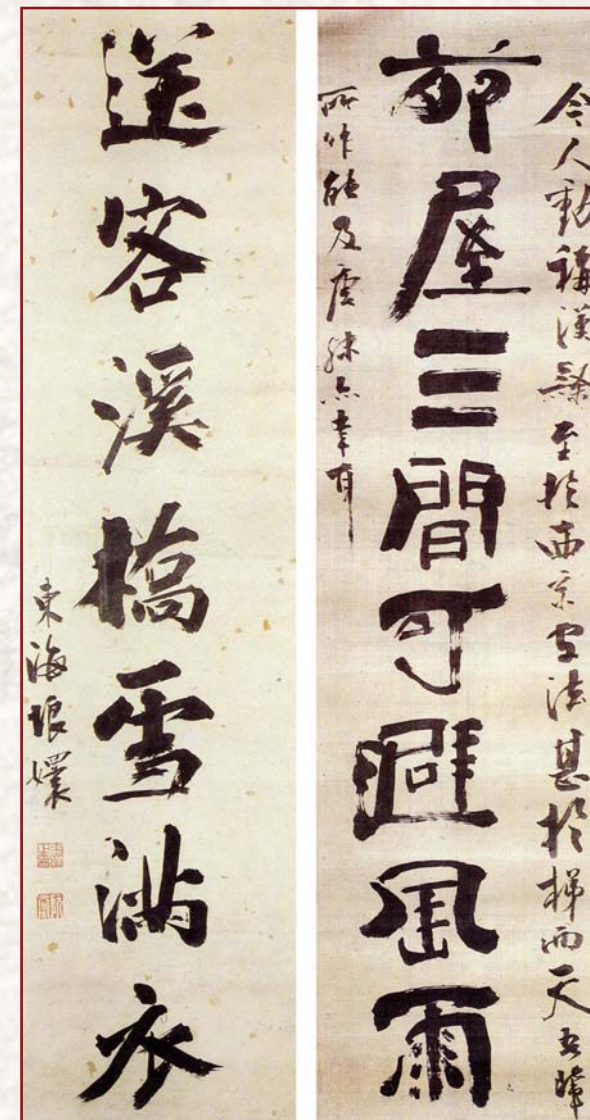 今人動稱漢隸至於西京字法甚於梯而天吾輩
茆屋三間可避風雨
所作能及唐隸亦幸耳
送客溪橋雪滿衣
東海琅嬛